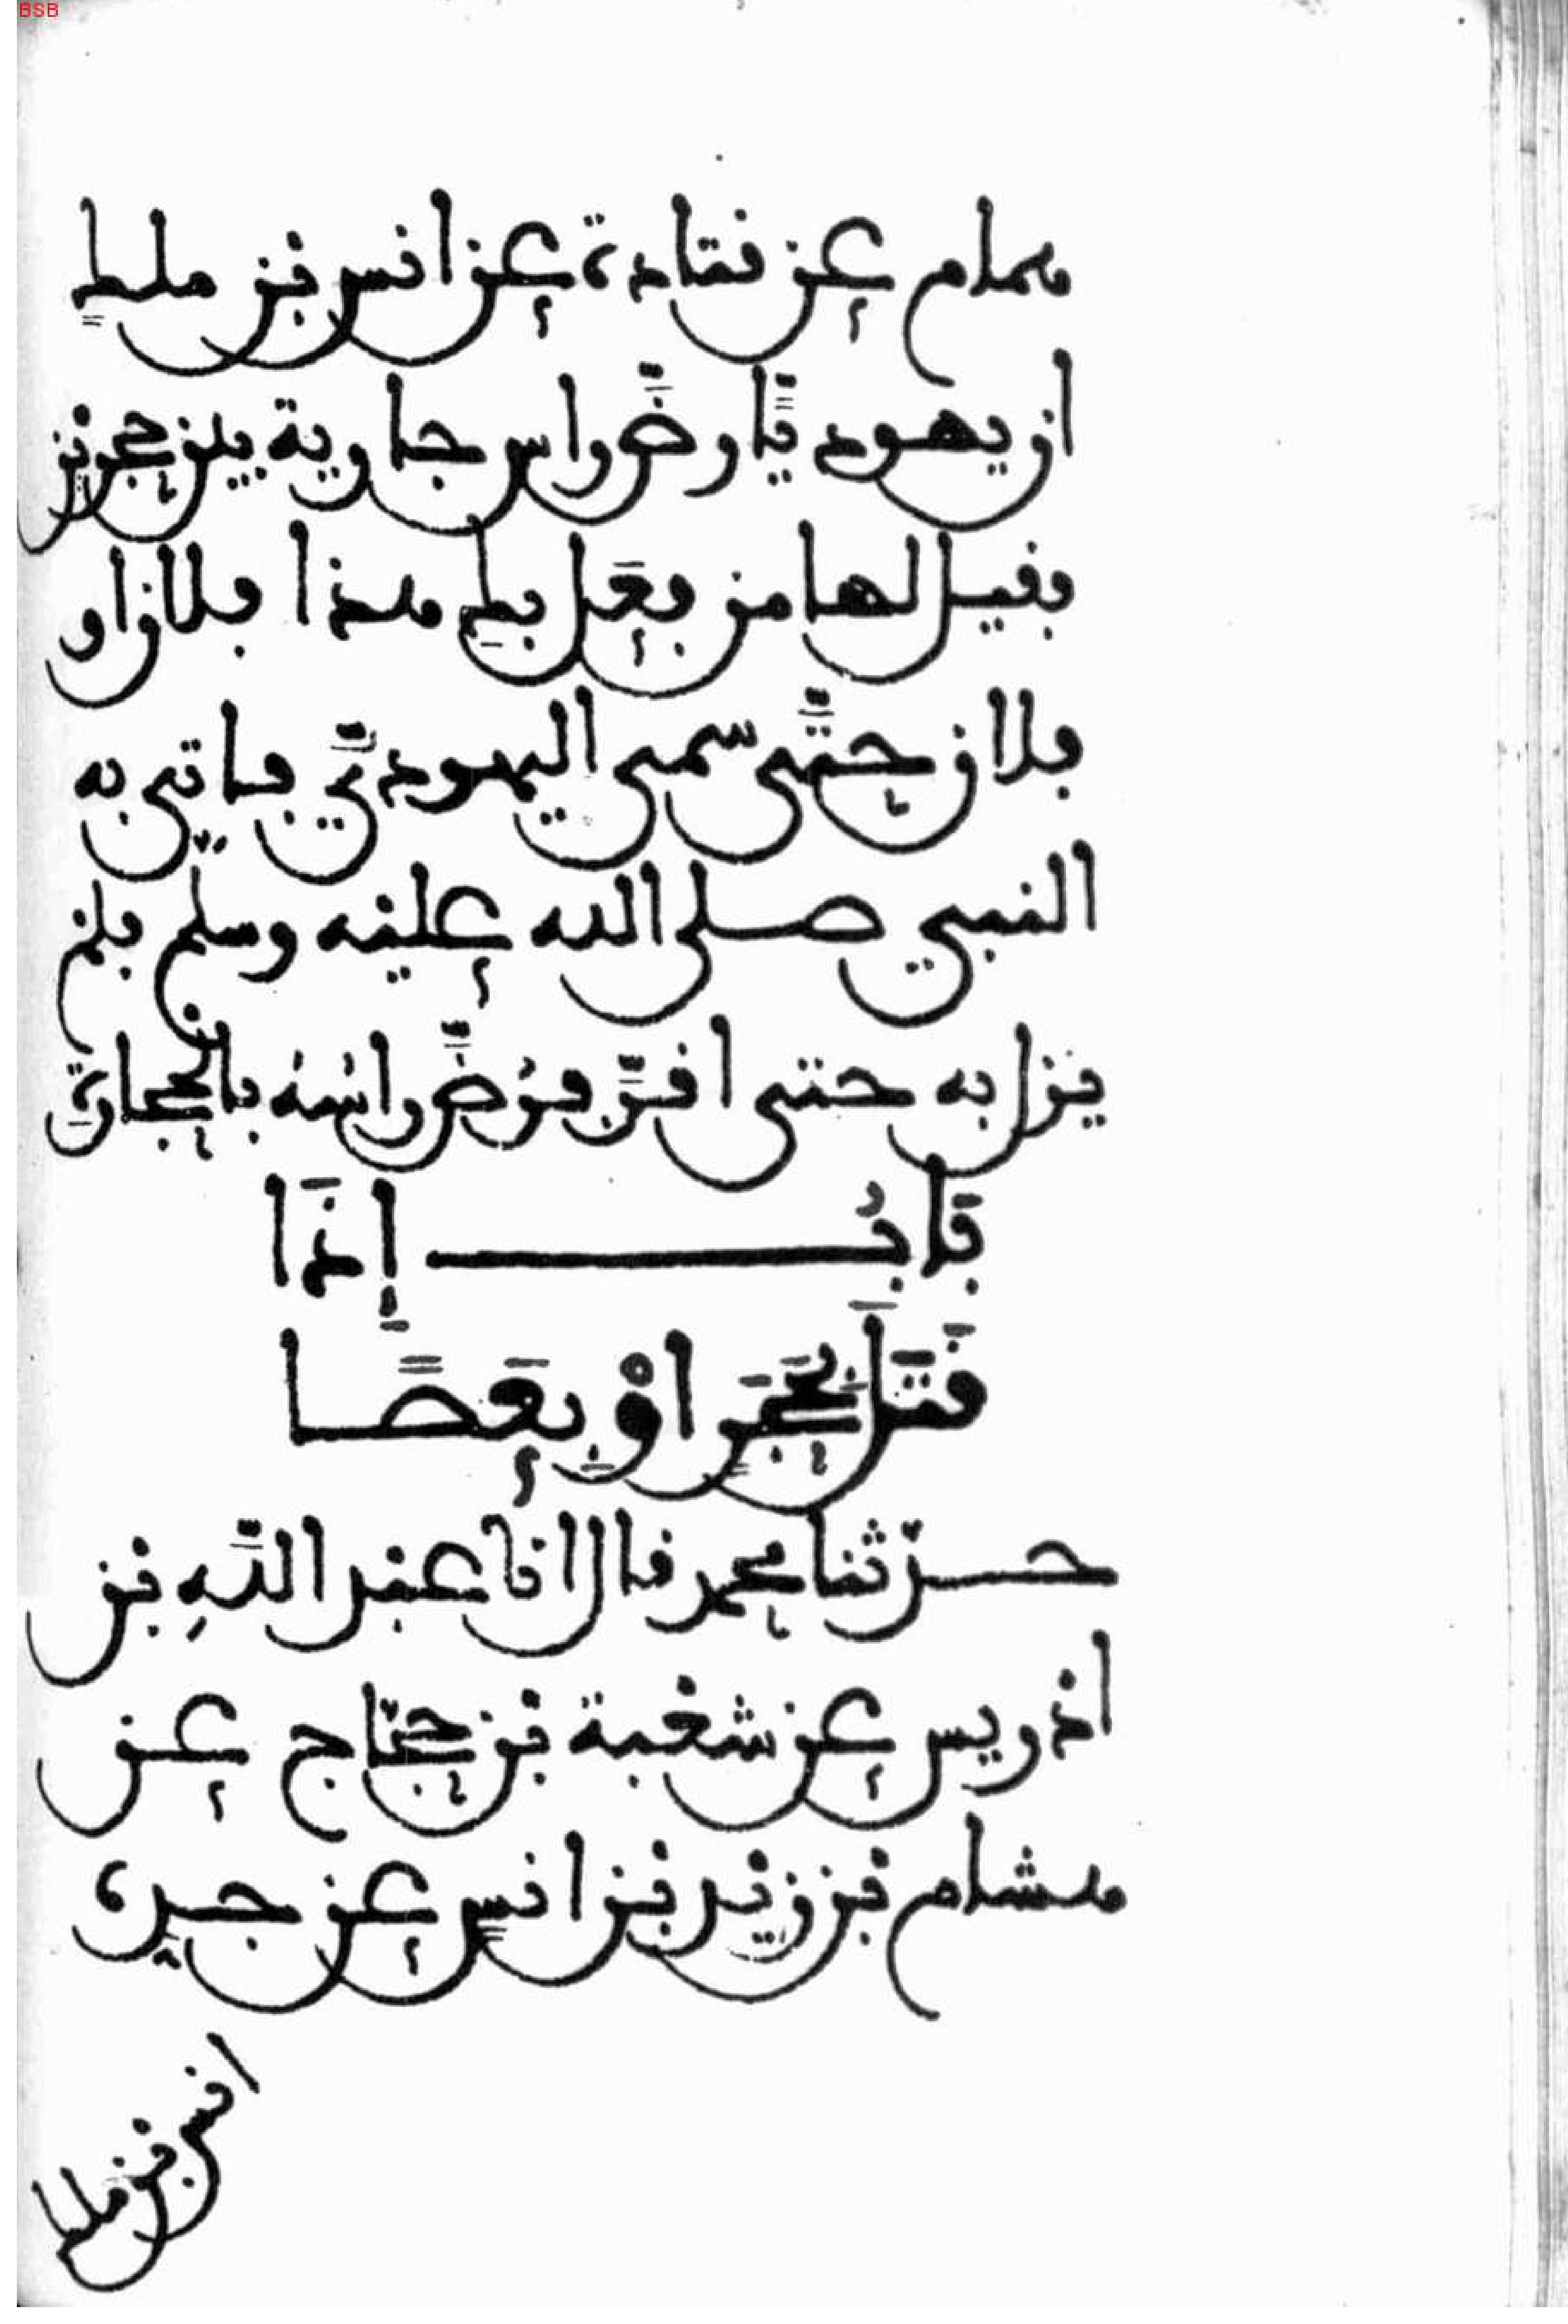 BSB
همام عن قتادة عن انس بن ملكٍ
ان يهوديًّا رضَّ راس جارية بين حجرين
فقيل لها من فعَل بكِ هذا فلان او
فلان حتًّى سمى اليهوديَّ فاتى به
النبي صلى الله عليه وسلم فلم
يزل به حتى اقرّ فرُضَّ راسُهُ بالحجارةِ
بَابُ إِذَا
قَتَلَ بحَجَرٍ اوْ بِعَصًا
حدّثنا محمد قال انا عبد اللَّهِ بن
ادريس عن شعبة بن حجّاج عن
هشام بن زيد بن انسٍ عن جدِه
انس بن ملك